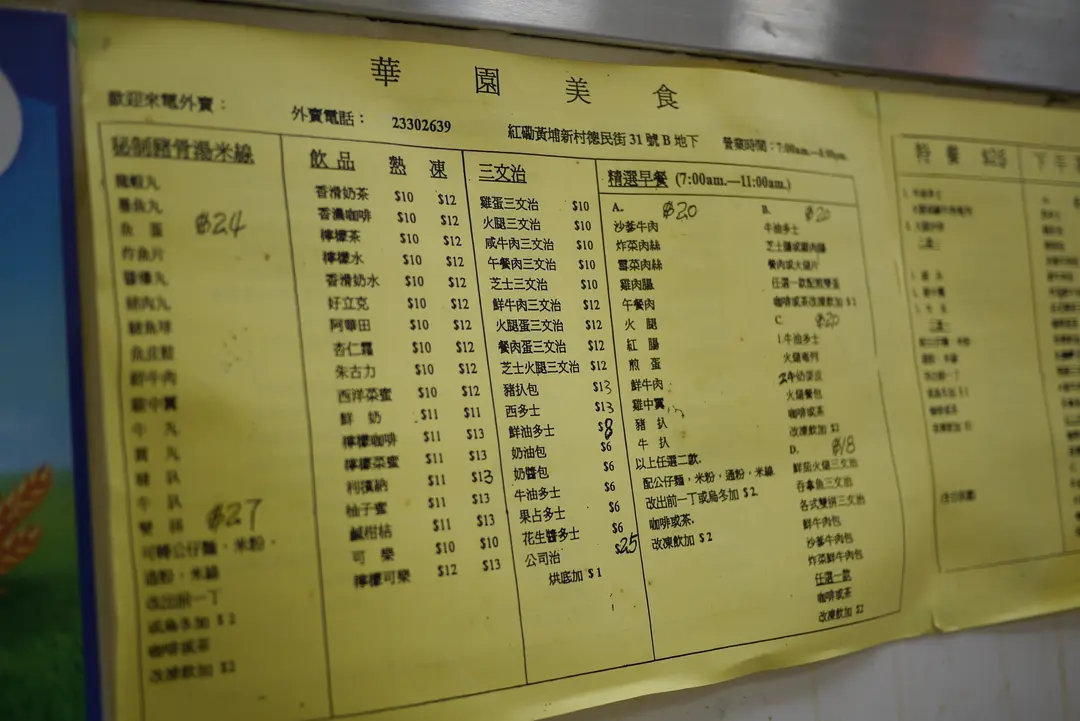 華園美食
歡迎來電外賣：
外賣電話： 23302639
紅磡黃埔新村德民街 31 號 B 地下
營業時間：7:00am.—8:00pm.
秘制豬骨湯米線
龍蝦丸
墨魚丸
魚 蛋 $24
炸魚片
豬肉丸
鯪魚球
魚皮餃
鮮牛肉
雞中翼
牛 丸
貢 丸
豬 扒
牛 扒
雙 拼 $27
可轉公仔麵，米粉，
通粉，米線
改出前一丁
或烏冬加 $2
咖啡或茶
改凍飲加 $2
飲品 熱 凍
香滑奶茶 $10 $12
香濃咖啡 $10 $12
檸檬茶 $10 $12
檸檬水 $10 $12
香滑奶水 $10 $12
好立克 $10 $12
阿華田 $10 $12
杏仁霜 $10 $12
朱古力 $10 $12
西洋菜蜜 $10 $12
鮮 奶 $11 $11
檸檬咖啡 $11 $13
檸檬菜蜜 $11 $13
利賓納 $11 $13
柚子蜜 $11 $13
鹹柑桔 $11 $13
可 樂 $10 $10
檸檬可樂 $12 $13
三文治
雞蛋三文治 $10
火腿三文治 $10
咸牛肉三文治 $10
午餐肉三文治 $10
芝士三文治 $10
鮮牛肉三文治 $12
火腿蛋三文治 $12
餐肉蛋三文治 $12
芝士火腿三文治 $12
豬扒包 $13
西多士 $13
鮮油多士 $8
奶油包 $6
奶醬包 $6
牛油多士 $6
果占多士 $6
花生醬多士 $6
公司治 $25
烘底加 $1
精選早餐 (7:00am.—11:00am.)
A. $20
沙爹牛肉
炸菜肉絲
雪菜肉絲
雞肉腸
午餐肉
火 腿
紅 腸
煎 蛋
鮮牛肉
雞中翼
豬 扒
牛 扒
以上任選二款.
配公仔麵，米粉，通粉，米線
改出前一丁或烏冬加 $2.
咖啡或茶.
改凍飲加 $2
B. $20
牛油多士
芝士腸或雞肉腸
餐肉或火腿片
任選一款配煎雙蛋
咖啡或茶改凍飲加 $2
C. $20
1.牛油多士
火腿奄列
火腿餐包
咖啡或茶
改凍飲加 $2
D. $18
鮮茄火腿三文治
吞拿魚三文治
各式雙拼三文治
鮮牛肉包
沙爹牛肉包
炸菜鮮牛肉包
任選一款
咖啡或茶
改凍飲加 $2
特 餐
下午